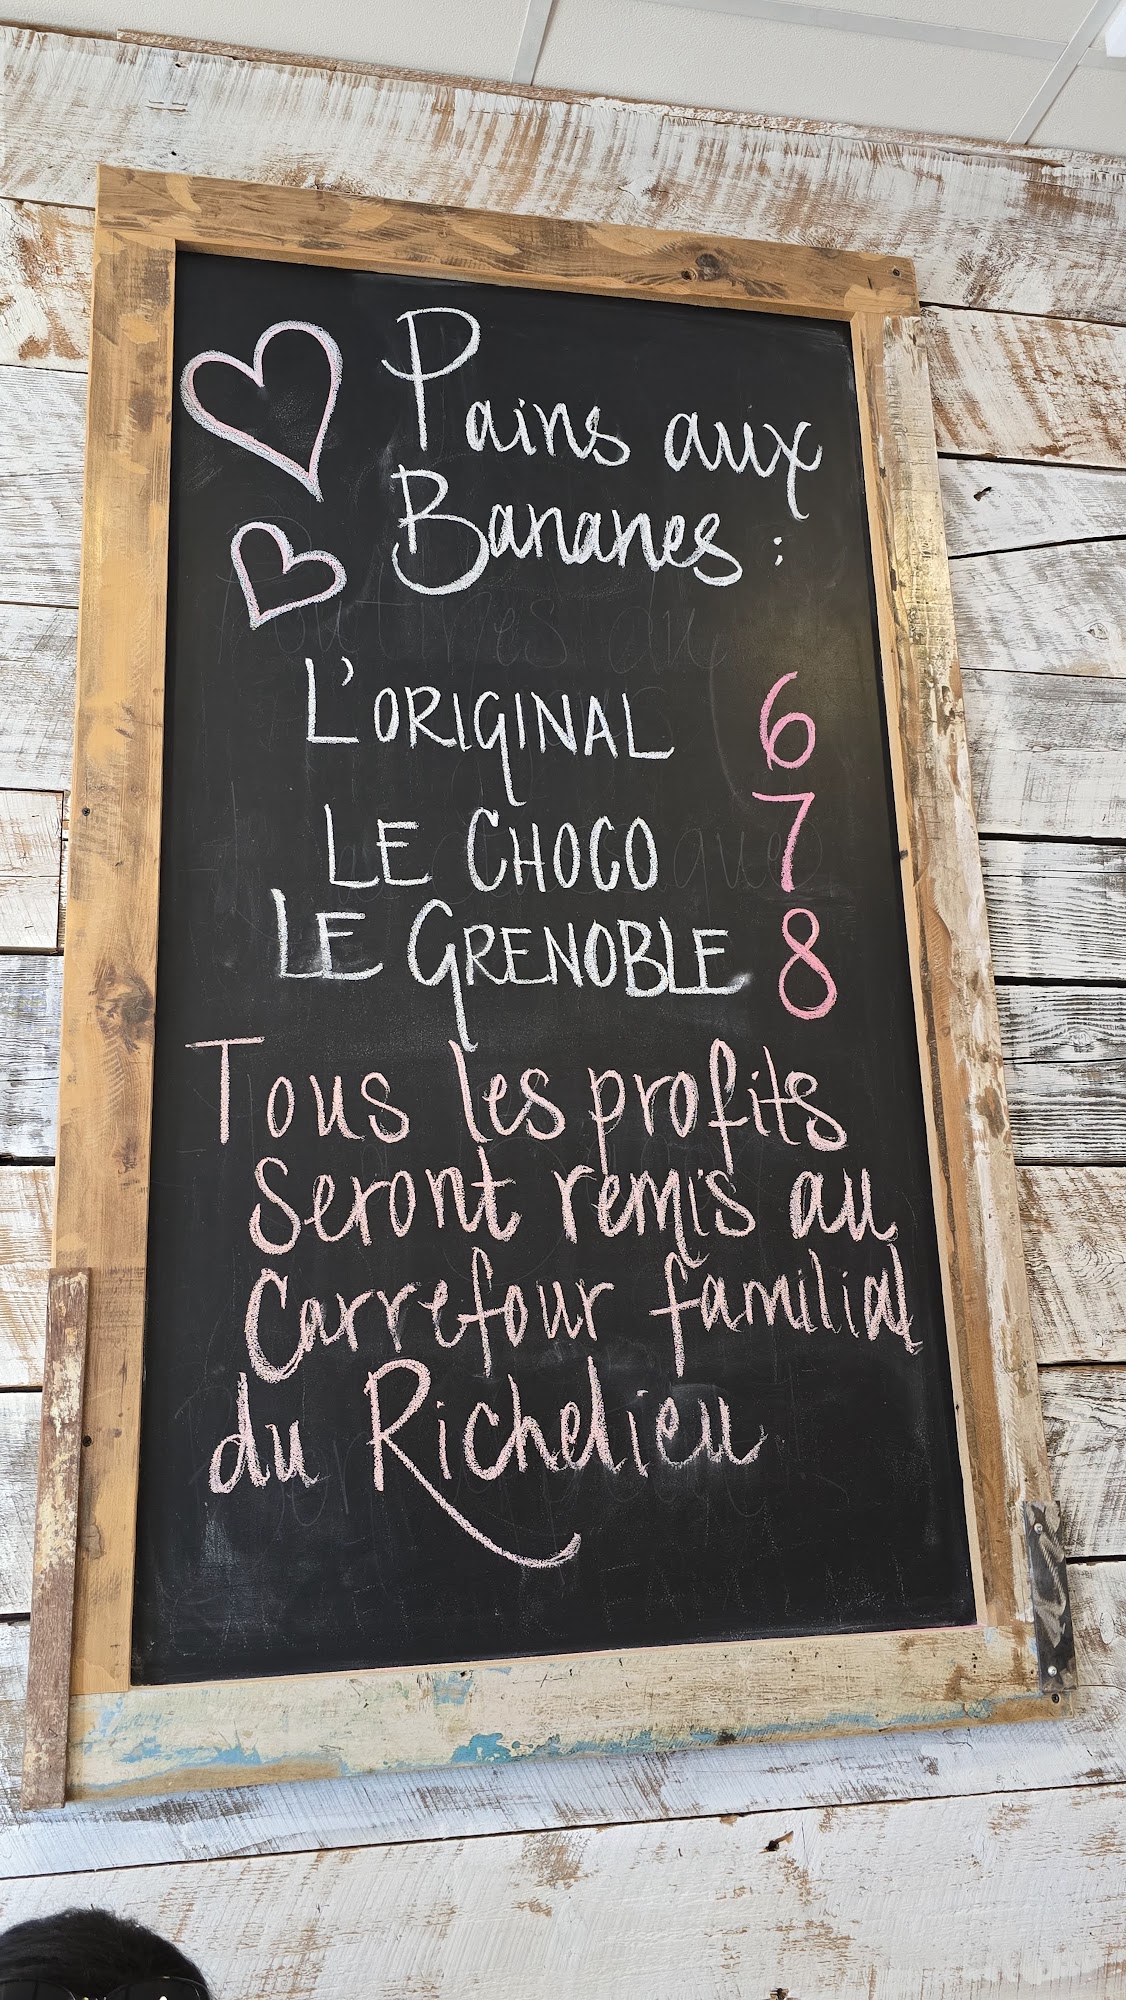 Pains aux
Bananes :
L'ORIGINAL 6
LE CHOCO 7
LE GRENOBLE 8
Tous les profits
seront remis au
Carrefour familial
du Richelieu